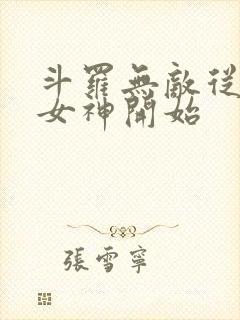 斗羅無敵從
女神開始
張雪寧